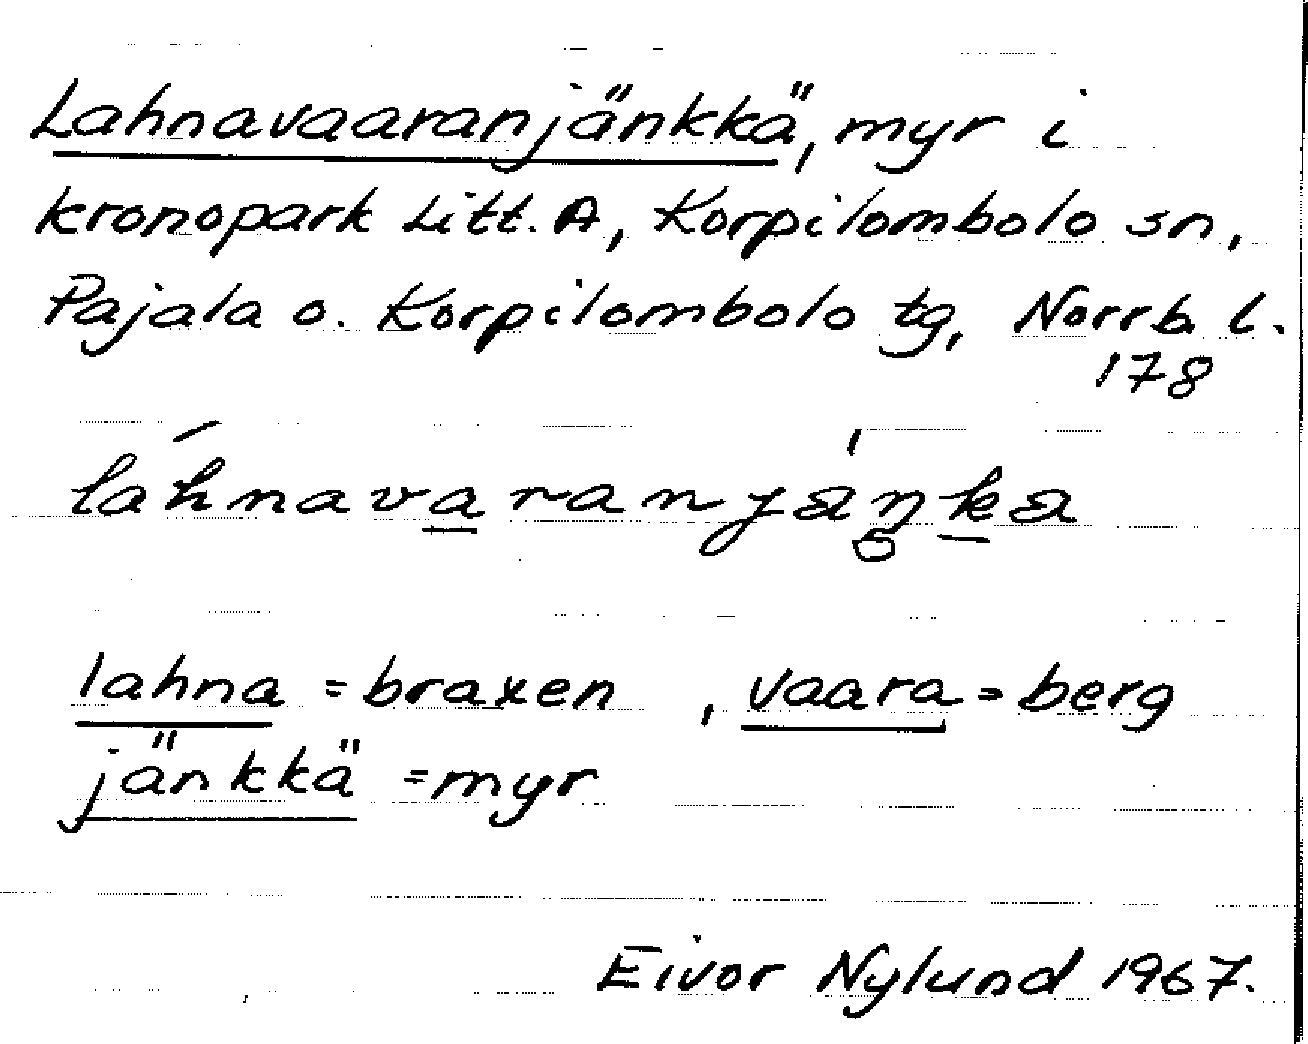 Lahnavaaranjänkkä, myr i
kronopark Litt. A, Korpilombolo sn,
Pajala o. Korpilombolo tg, Norrb. l.
178
láhnavaranjäŋka
lahna = braxen , vaara = berg
jänkkä = myr
Eivor Nylund 1967.